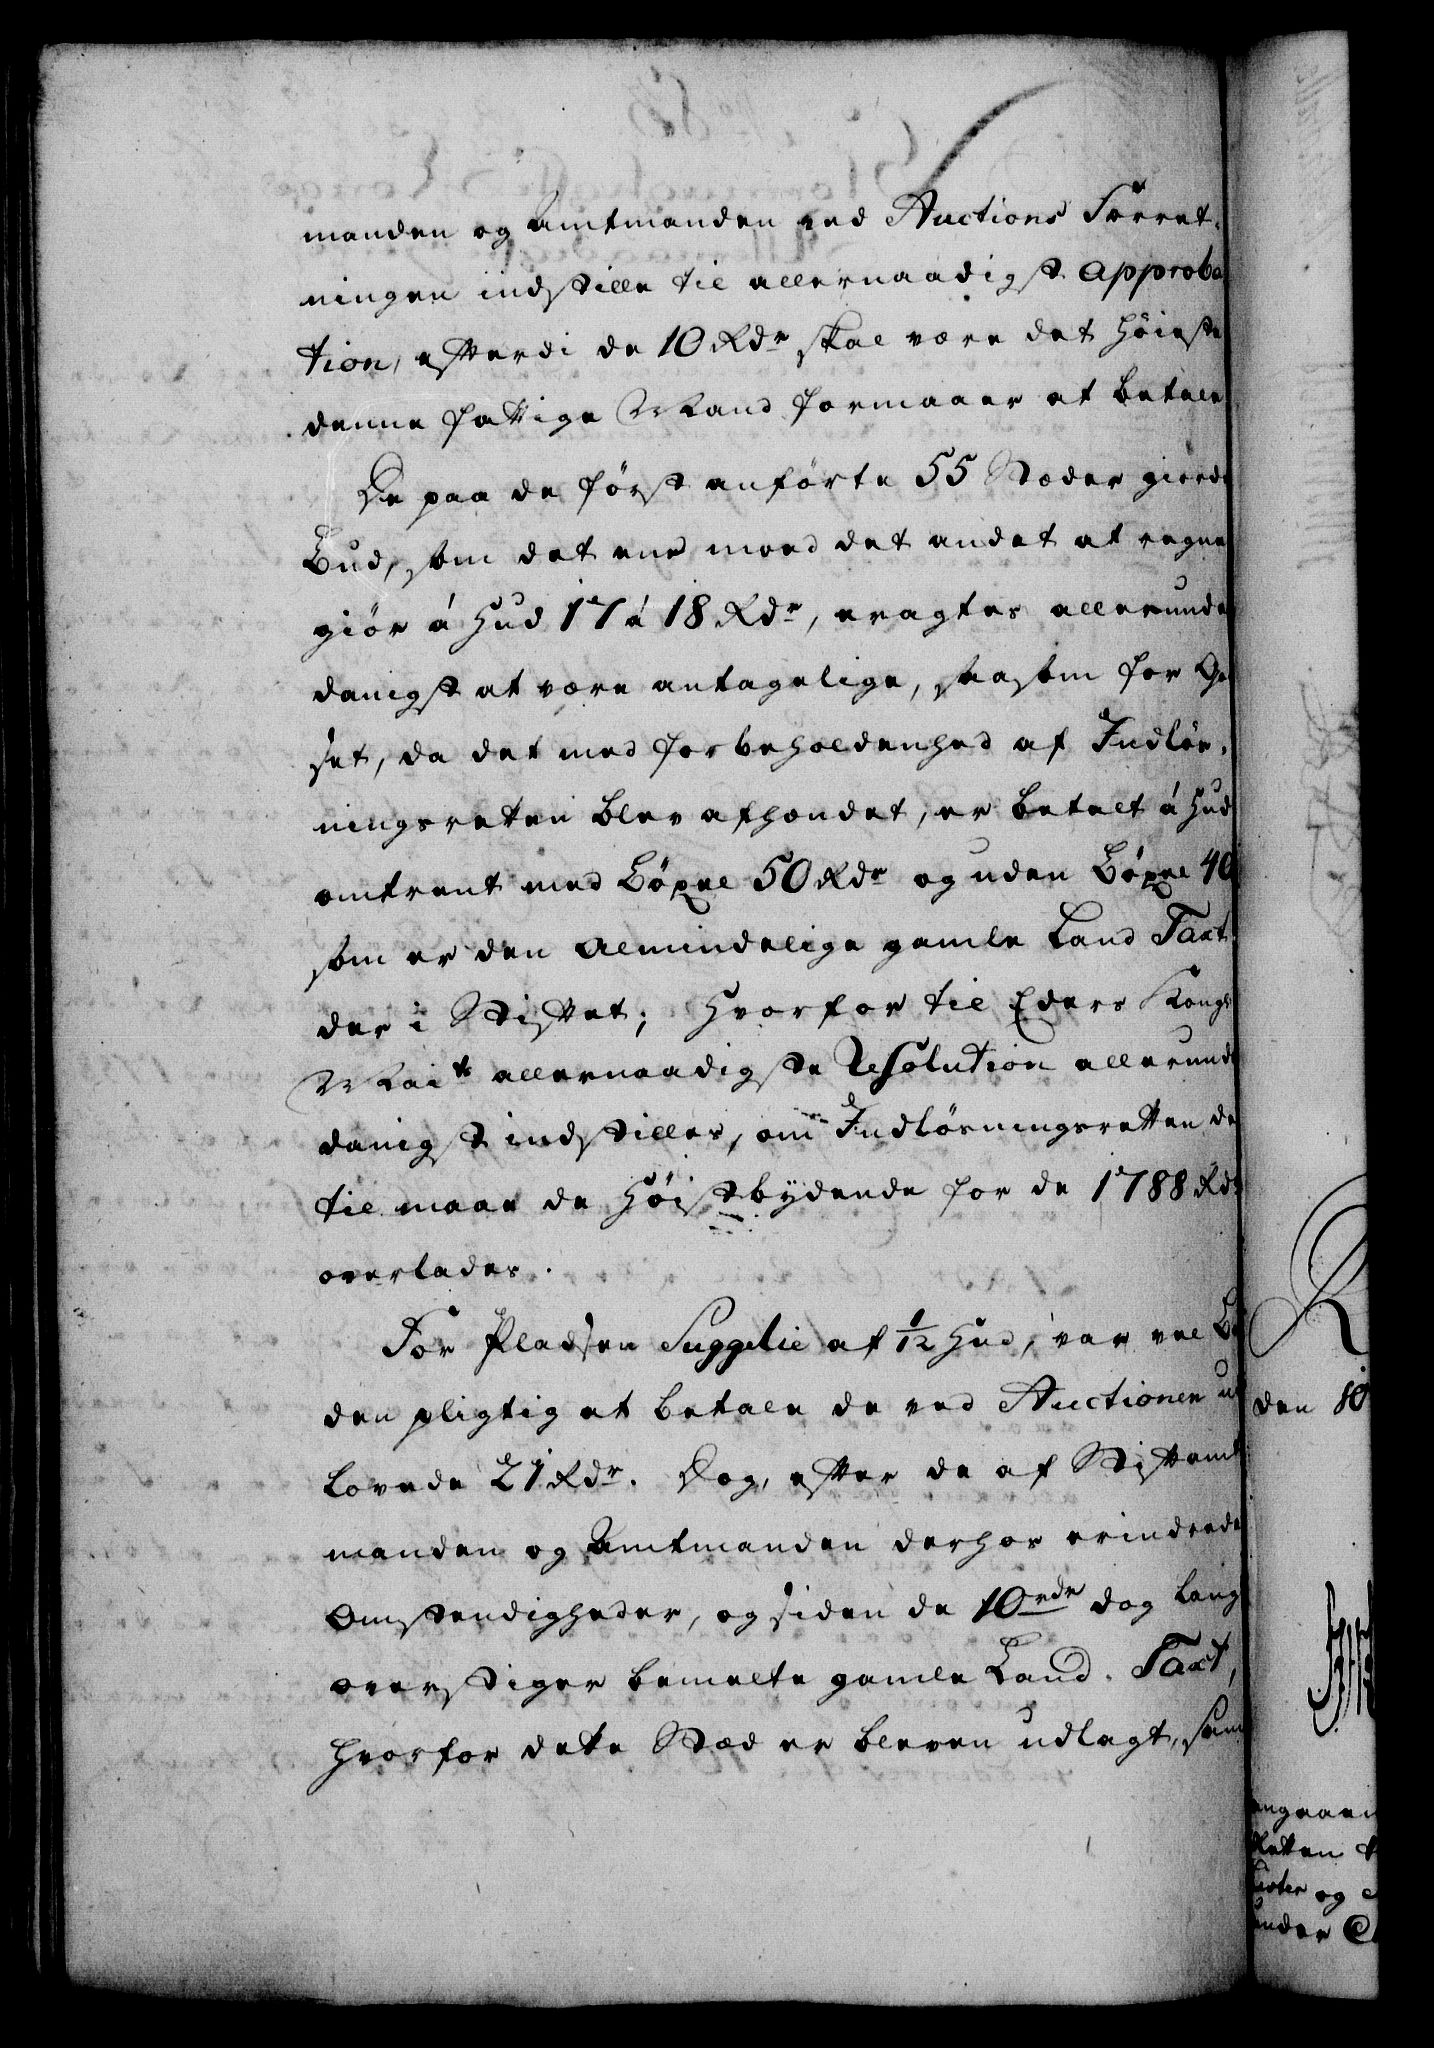 manden og Amtmanden ved Auctions Forret-
ningen indstille til allernaadigst approba
tion, efterdi de 10 Rdr skal være det høieste
denne fattige Mand formaaer at betale
De paa de først anførte 55 Stæder giorde
Bud, som det ene med det andet at regne
giør á Hud 17 á 18 Rdr, eragtes allerunder
danigst at være antagelige, saasom for God
set, da det med forbeholdenhed af Indløs-
ningsretten blev afhændet, er betalt á Hud
omtrent med Bøxel 50 Rdr og uden Bøxel 40
som er den almindelige gamle Land Taxt
der i Stiftet; Hvorfor til Eders Kongl
Maits allernaadigste Resolution allerund
danigst indstilles, om Indløsningsretten der
til maae de Høistbydende for de 1788 Rdr
overlades.
For Pladsen Suggelie af 1/12 Hud, var vel
den pligtig at betale de ved Auctionen ud
lovede 21 Rdr. Dog, efter de af Stiftamt
manden og Amtmanden derhos erindrede
Omstændigheder, og siden de 10 rdr dog langt
overstiger bemelte gamle Land-Taxt,
hvorfor dette Stæd er bleven udlagt, sam
den 10
angaaen
Retten
og
under